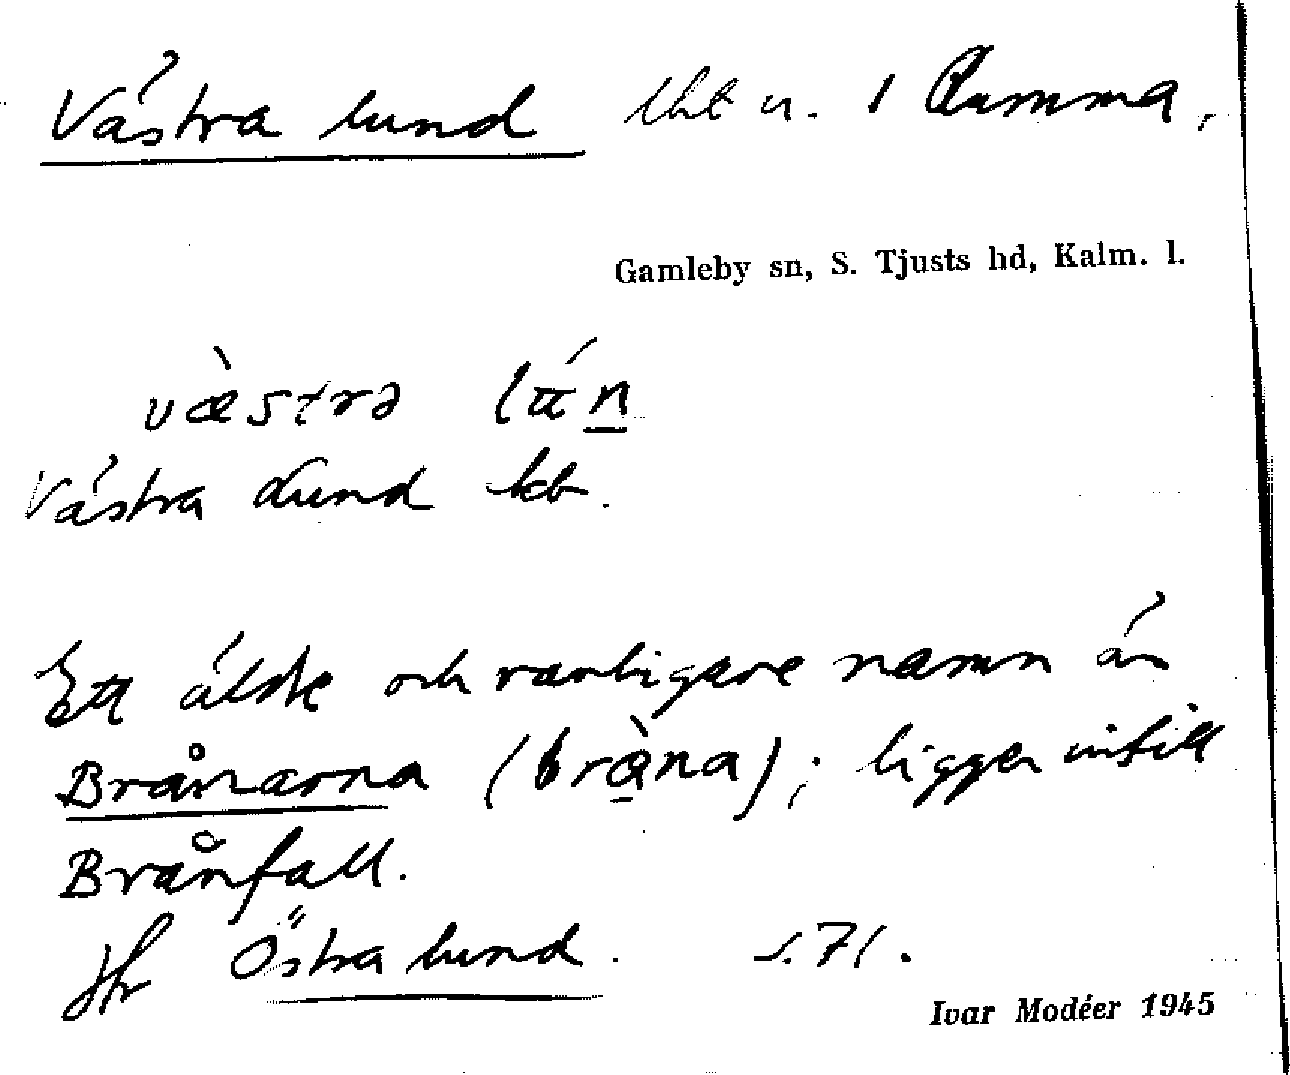 Västra lund lht u. 1 Rumma,
Gamleby sn, S. Tjusts hd, Kalm. l.
væ̀strə
Västra Lund kb.
Ett äldre och vanligare namn än
Brånarna (bràna); ligger intill
Brånfall.
Jfr Östra lund. s. 71.
Ivar Modéer 1945